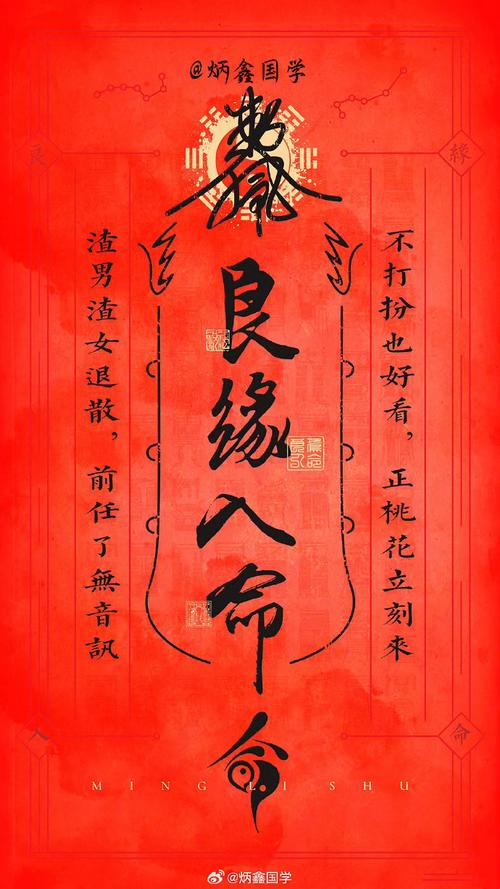 @炳鑫国学
不打扮也好看，正桃花立刻來
良缘入命
渣男渣女退散，前任了無音訊
良
緣
入
命
命
MING LI SHU
@炳鑫国学